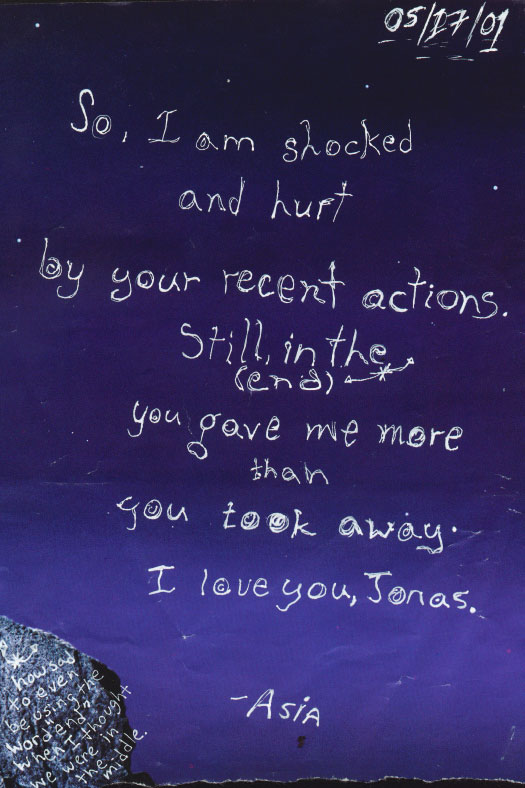 05/17/01
So, I am shocked
and hurt
by your recent actions.
Still, in the
(end)
you gave me more
than
you took away.
I love you, Jonas.
-Asia
* how sad
to even
be using the
word "end"
when I thought
we were in
the middle.